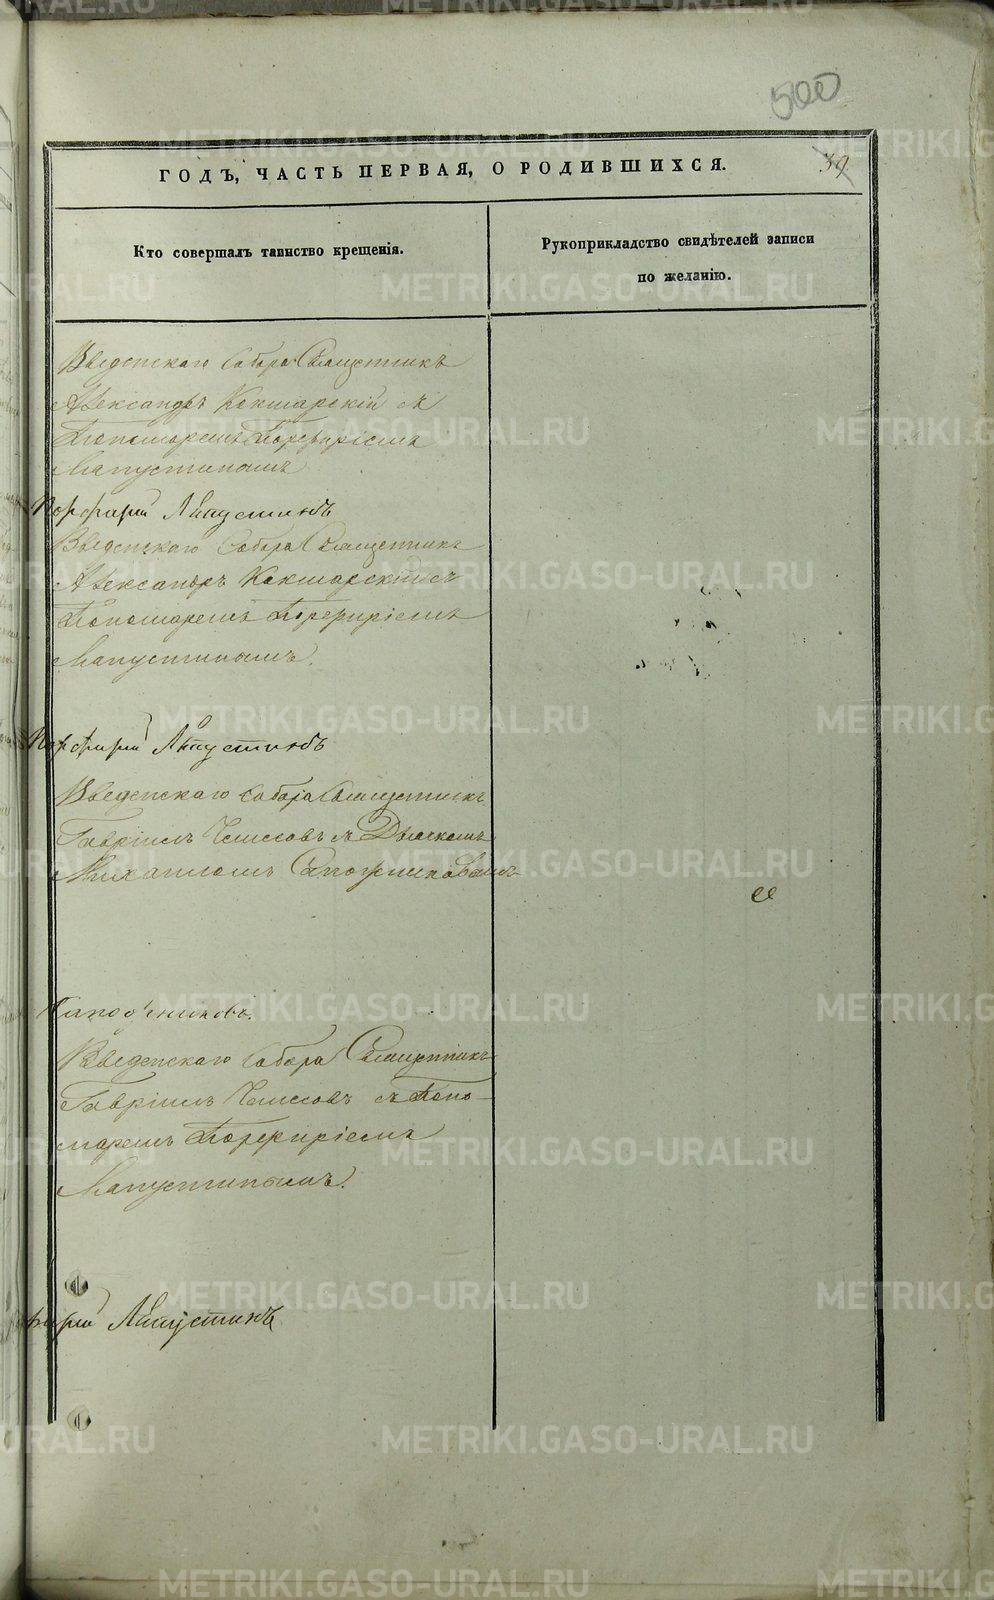 500
ГОДЪ, ЧАСТЬ ПЕРВАЯ, О РОДИВШИХСЯ.
39
Кто совершалъ таинство крещенія.
Рукоприкладство свидѣтелей записи
по желанію.
Введенскаго Собора Священникъ
Александръ Кокшарскій съ
Пономаремъ Порфиріемъ
Лапустинымъ
Порфирій Лапустинъ
Введенскаго Собора Священникъ
Александръ Кокшарскій съ
Пономаремъ Порфиріемъ
Лапустинымъ.
Порфирій Лапустинъ
Введенскаго Собора Священникъ
Гавріилъ съ Дьячкомъ
Михаиломъ Сапожниковымъ
Сапожниковъ.
Введенскаго Собора Священникъ
Гавріилъ съ Поно-
маремъ Порфиріемъ
Лапустинымъ.
Лапустинъ
METRIKI.GASO-URAL.RU